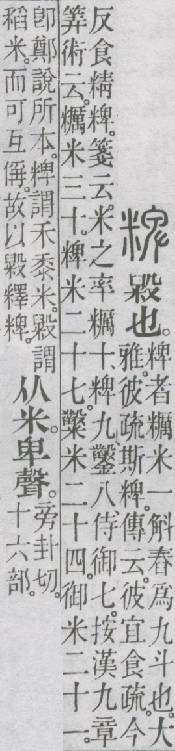 粺 毇也。粺者糲米一斛舂爲九斗也。大
雅。彼疏斯粺。傳云。彼宜食疏。今
反食精粺。箋云。米之率糲十。粺九。鑿八。侍御七。按漢九章
筭術云。糲米三十。粺米二十七。糳米二十四。御米二十一。
卽鄭說所本。粺謂禾黍米。毇謂
稻米。而可互偁。故以毇釋粺。
从米。卑聲。旁卦切。
十六部。